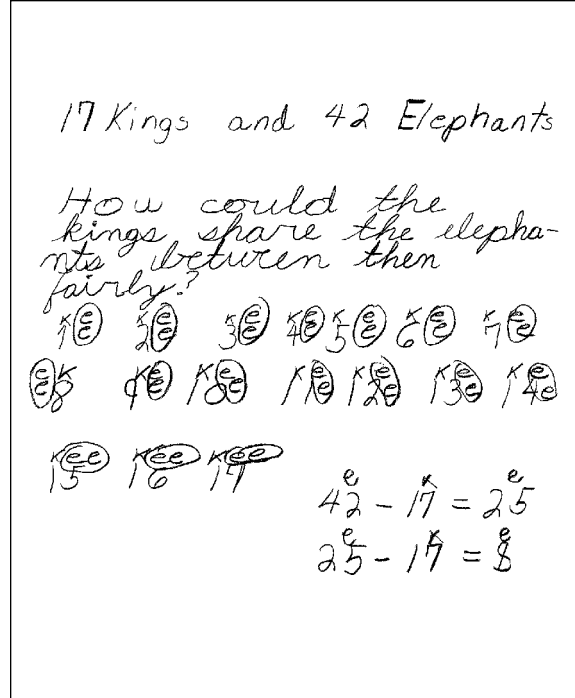 17 Kings and 42 Elephants
How could the
kings share the elepha-
nts between then
fairly?
K1 ee K2 ee K3 ee K4 ee K5 ee K6 ee K7 ee
ee K8 K9 ee K10 ee K11 ee K12 ee K13 ee K14 ee
K15 ee K16 ee K17 ee
42 e - 17 K = 25 e
25 e - 17 K = 8 e